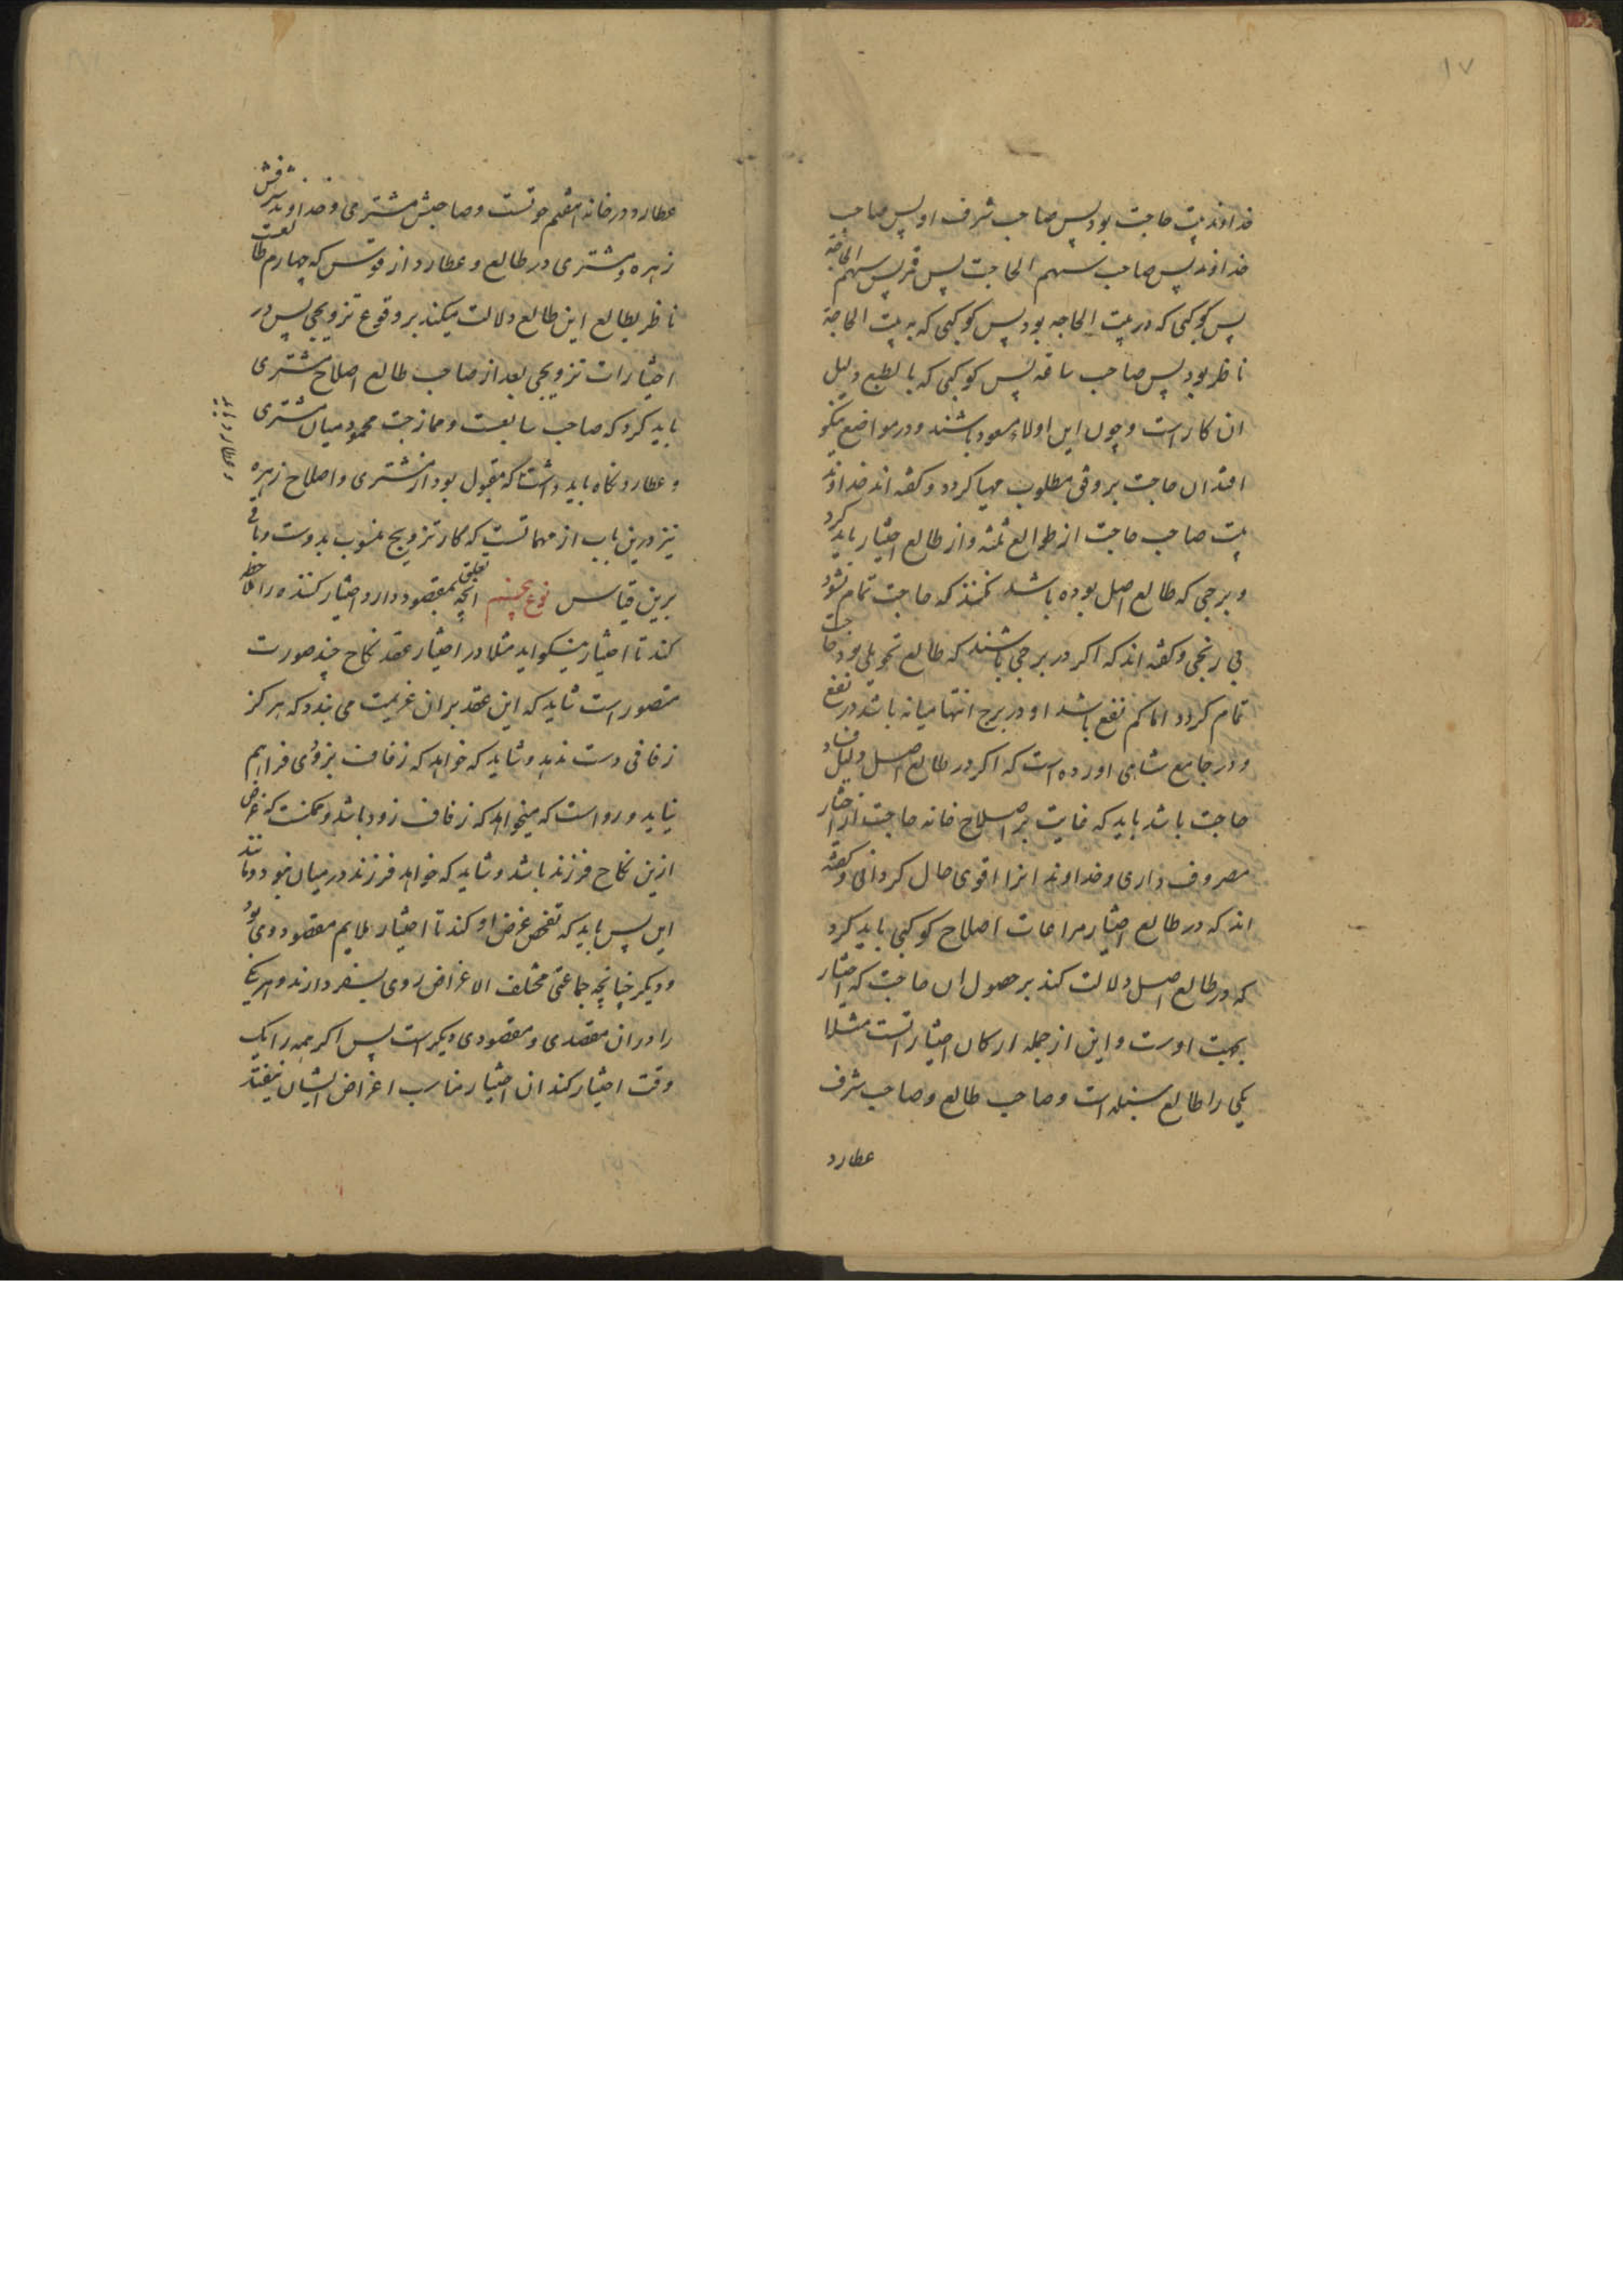 ۱۷
خداوند بیت حاجت بود پس صاحب شرف او پس صاحب
خداوند پس صاحب سهم الحاجت پس قمر پس سهم الحاجة
پس کوکبی که در بیت الحاجه بود پس کوکبی که به بیت الحاجة
ناظر بود پس صاحب ساقه پس کوکبی که بالطبع دلیل
ان کار است و چون این اولاء مسعود باشند و در مواضع نیکو
افتد ان حاجت بر وفق مطلوب مهیا کردد و کفته اند خداوند
بیت صاحب حاجت از طوالع ثلثه و از طالع اختیار باید کرد
و برجی که طالع اصل بوده باشد نکنند که حاجت تمام نشود
بی رنجی و کفته اند که اکر در برجی باشند که طالع تحویل بود حاجت
تمام کردد اما کم نفع باشد و در برج انتها میانه باشد در نفع
و در جامع شاهی اورده است که اکر در طالع اصل دلیل فساد
حاجت باشد باید که غایت بر اصلاح خانه حاجت در اختیار
مصروف داری و خداوند انرا اقوی حال کردانی و کفته
اند که در طالع اختیار مراعات اصلاح کوکبی باید کرد
که در طالع اصل دلالت کند بر حصول ان حاجت که اختیار
بجهت اوست و این از جمله ارکان اختیار اتست مثلا
یکی را طالع سنبله است و صاحب طالع و صاحب شرف
عطارد
عطارد و در خانه هفتم حوتست و صاحبش مشتری و خداوند شرفش
زهره و مشتری در طالع و عطارد از قوس که چهارم طالعست
ناظر بطالع این طالع دلالت میکند بر وقوع تزویجی پس در
اختیارات تزویجی بعد از صاحب طالع اصلاح مشتری
باید کرد که صاحب سابعست و ممازجت محمود میان مشتری
و عطارد نکاه باید داشت که مقبول بود از مشتری و اصلاح زهره
نیز درین باب از مهماتست که کار تزویج منسوب بدوست و باقی
برین قیاس نوع پنجم انچه تعلق بمقصود دارد اختیار کننده را ملاحظه
کند تا اختیار نیکو اید مثلا در اختیار عقد نکاح چند صورت
متصور است شاید که این عقد بران عزیمت می بندد که هرکز
زفافی دست ندهد و شاید که خواهد که زفاف بزودی فراهم
نیاید و رواست که میخواهد که زفاف زود باشد و ممکنست که غرض
ازین نکاح فرزند باشد و شاید که خواهد فرزند در میان نبود و مانند
این پس باید که تفحص غرض او کند تا اختیار ملایم مقصود وی بود
و دیکر چنانچه جماعتی مختلف الاغراض روی بسفر دارند و هر یک
را در ان مقصدی و مقصودی دیکر است پس اکر همه را یک
وقت اختیار کند ان اختیار مناسب اغراض ایشان نیفتد